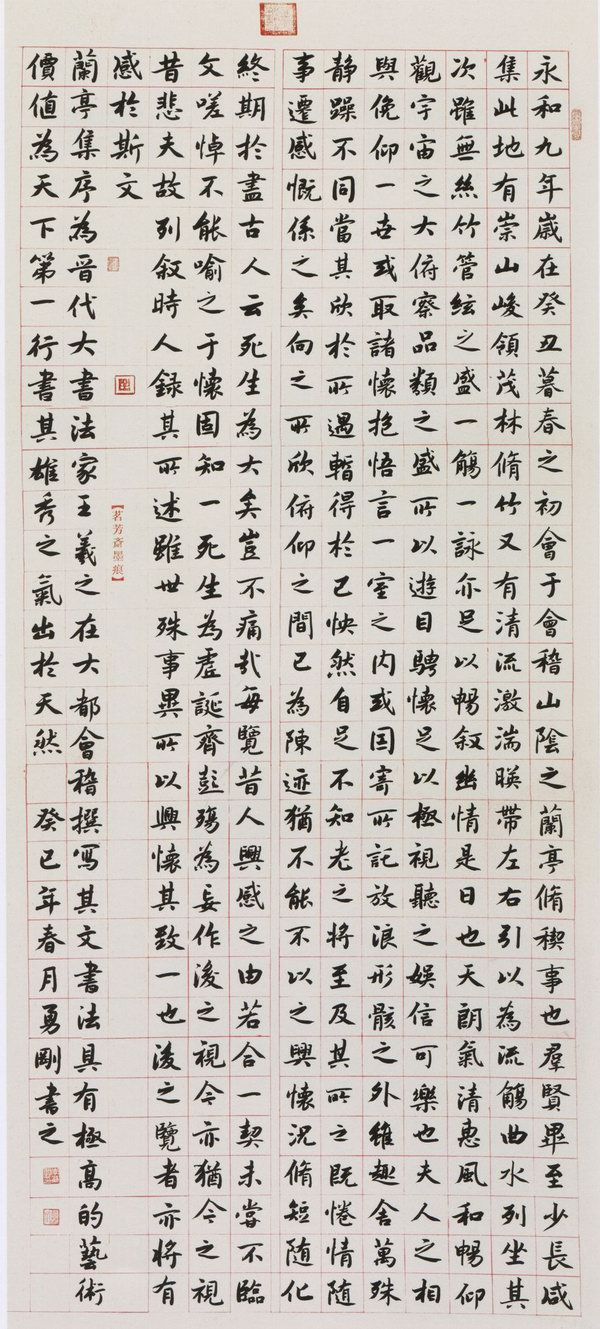 永和九年歲在癸丑暮春之初會于會稽山陰之蘭亭脩稧事也羣賢畢至少長咸
集此地有崇山峻領茂林脩竹又有清流激湍暎帶左右引以為流觴曲水列坐其
次雖無絲竹管絃之盛一觴一詠亦足以暢叙幽情是日也天朗氣清惠風和暢仰
觀宇宙之大俯察品類之盛所以遊目騁懷足以極視聽之娛信可樂也夫人之相
與俛仰一世或取諸懷抱悟言一室之内或因寄所託放浪形骸之外雖趣舍萬殊
静躁不同當其欣於所遇暫得於己怏然自足不知老之將至及其所之既惓情隨
事遷感慨係之矣向之所欣俯仰之間已為陳迹猶不能不以之興懷況脩短隨化
終期於盡古人云死生為大矣豈不痛哉每覽昔人興感之由若合一契未嘗不臨
文嗟悼不能喻之于懷固知一死生為虛誕齊彭殤為妄作後之視今亦猶今之視
昔悲夫故列叙時人録其所述雖世殊事異所以興懷其致一也後之覽者亦將有
感於斯文
【茗芳斎墨痕】
蘭亭集序為晋代大書法家王羲之在大都會稽撰寫其文書法具有極高的藝術
價值為天下第一行書其雄秀之氣出於天然 癸巳年春月勇剛書之